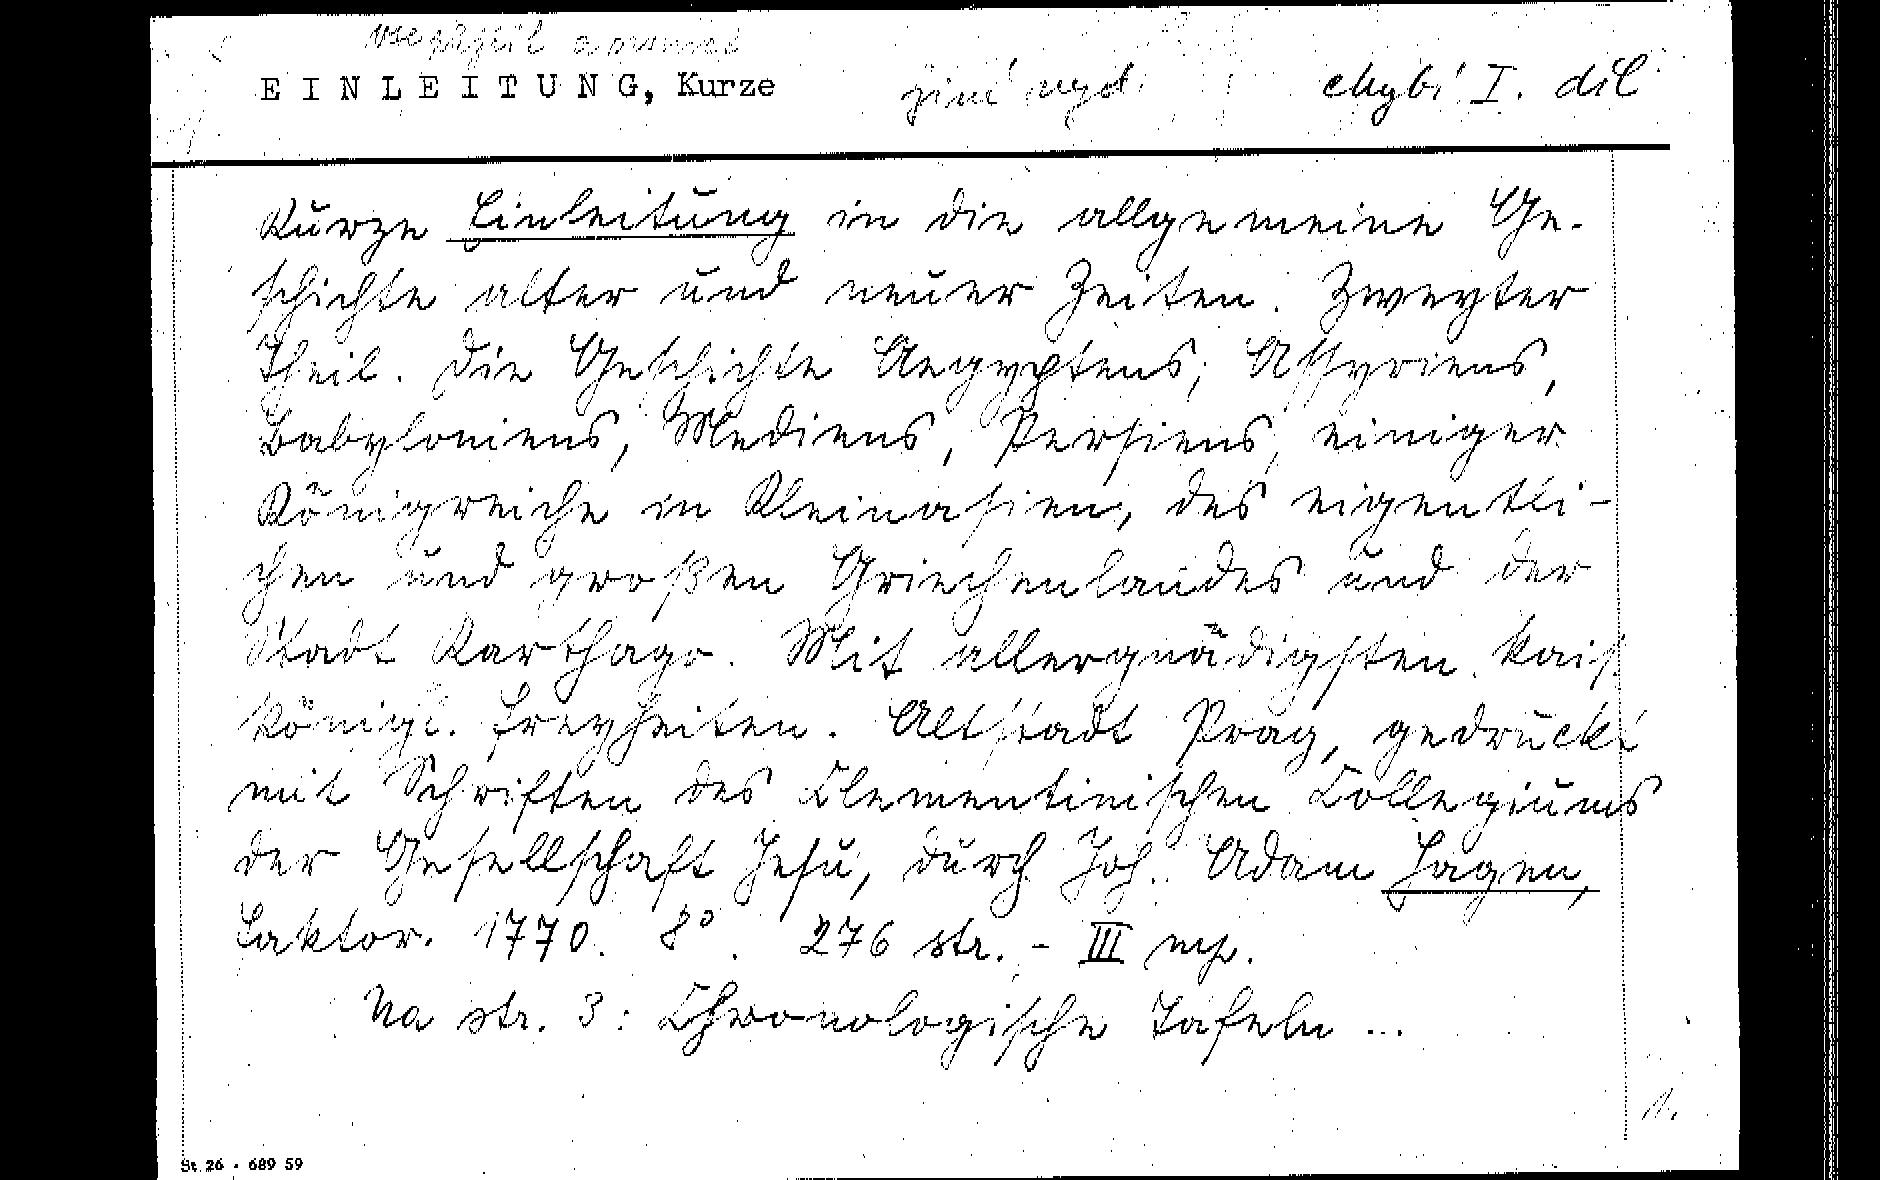 EINLEITUNG, Kurze jiné vyd. chybí I. díl
Kurze Einleitung in die allgemeine Ge-
schichte alter und neuer Zeiten. Zweyter
Theil. Die Geschichte Aegyptens, Assyriens,
Babyloniens, Mediens, Persiens, einiger
Königreiche in Kleinasien, des eigentli-
chen und großen Griechenlandes und der
Stadt Karthago. Mit allergnädigsten kais.
königl. Freyheiten. Altstadt Prag, gedruckt
mit Schriften des Clementinischen Collegiums
der Gesellschaft Jesu, durch Joh. Adam Hagen,
Faktor. 1770. 8°. 276 str. - III mp.
Na str. 3: Chronologische Tafeln ...
1.
St 26 - 689 59